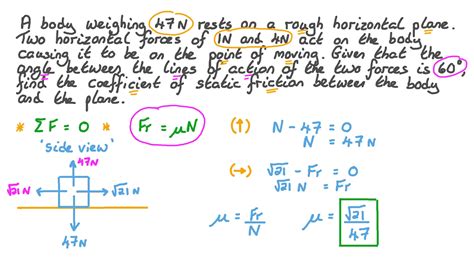 A body weighing 47N rests on a rough horizontal plane.
Two horizontal forces of 1N and 4N act on the body
causing it to be on the point of moving. Given that the
angle between the lines of action of the two forces is 60°,
find the coefficient of static friction between the body
and the plane.
* ΣF = 0 *
Fr = μN
(↑) N - 47 = 0
N = 47N
'side view'
47N
√21 N
√21 N
47N
(→) √21 - Fr = 0
√21 N = Fr
μ = Fr/N
μ = √21/47